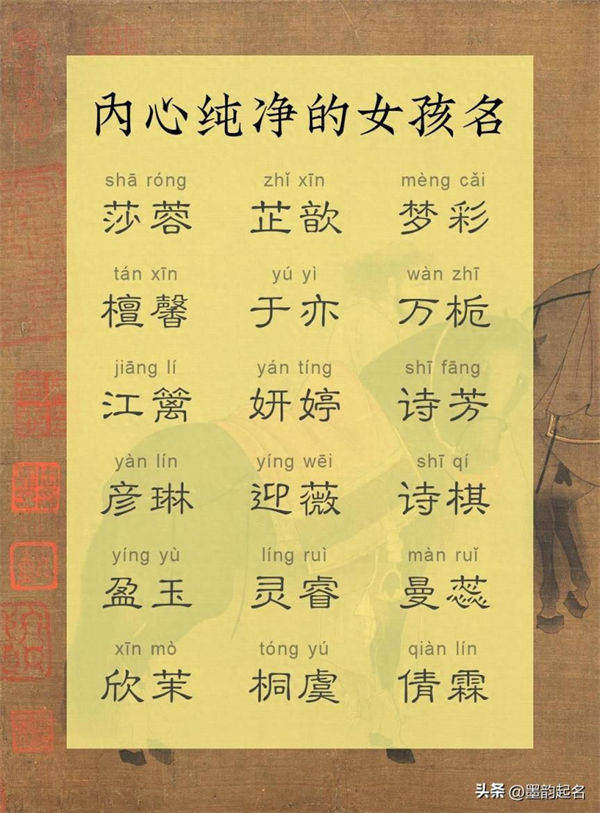 内心纯净的女孩名
shā róng zhǐ xīn mèng cǎi
莎蓉 芷歆 梦彩
tán xīn yú yì wàn zhī
檀馨 于亦 万栀
jiāng lí yán tíng shī fāng
江篱 妍婷 诗芳
yàn lín yíng wēi shī qí
彦琳 迎薇 诗棋
yíng yù líng ruì màn ruǐ
盈玉 灵睿 曼蕊
xīn mò tóng yú qiàn lín
欣茉 桐虞 倩霖
头条 @墨韵起名